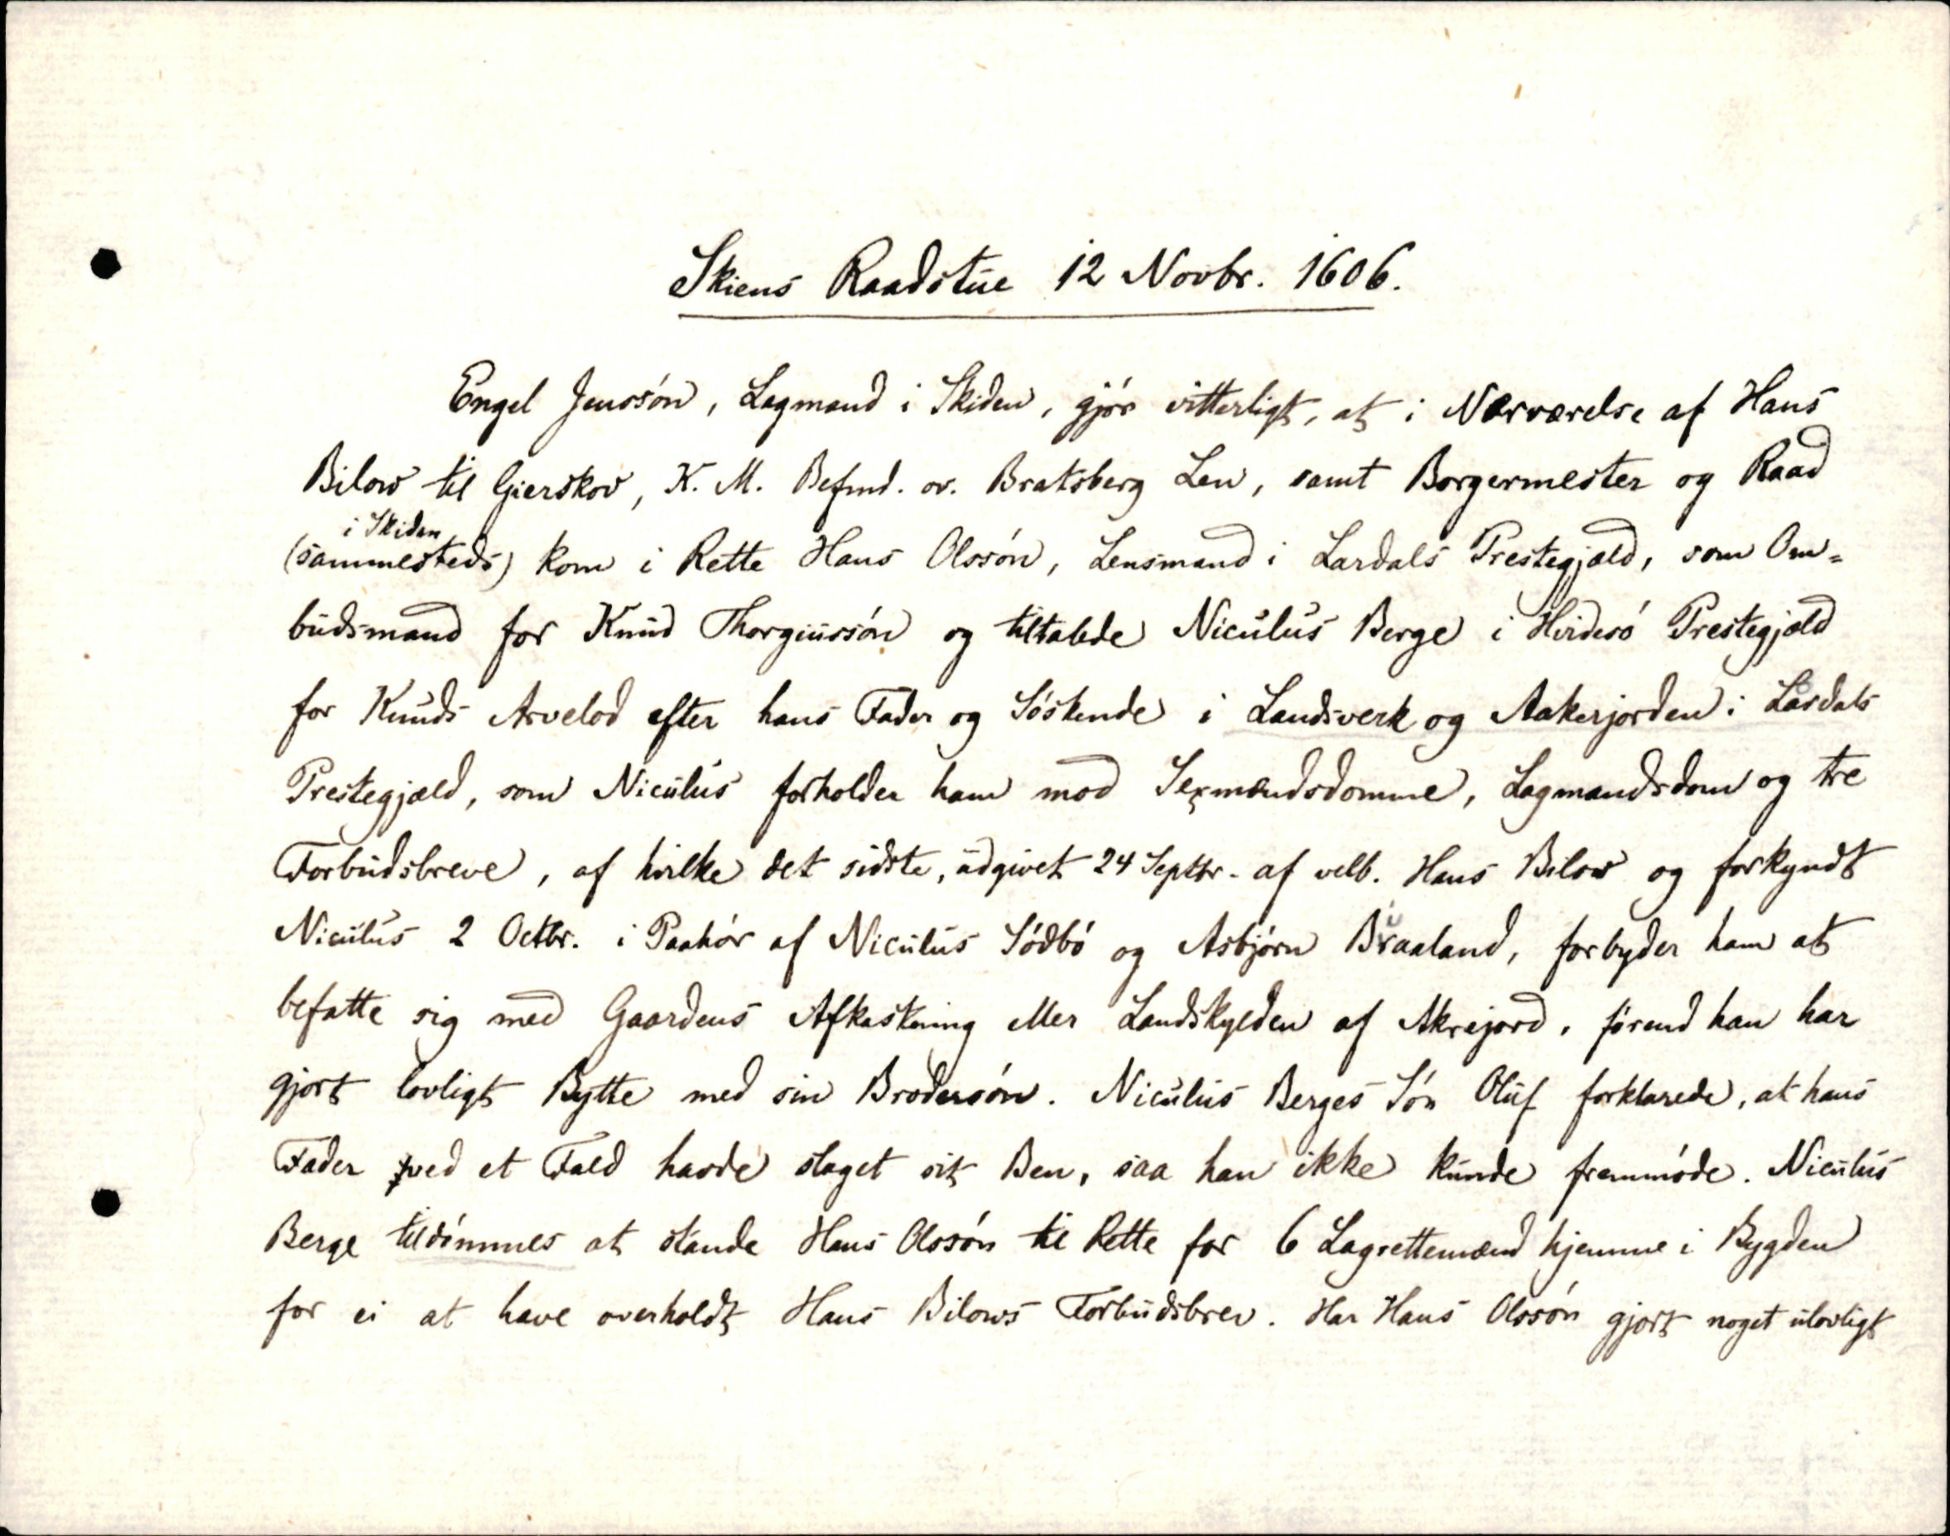 Skiens Raadstue 12 Novbr. 1606.
Engel Jenssön, Lagmand i Skiden, gjör vitterligt, at i Nærværelse af Hans
Bilow til Gierskov, K. M. Befmd. ov. Bratsberg Len, samt Borgermester og Raad
i Skiden
(sammesteds) kom i Rette Hans Olssön, Lensmand i Lardals Prestegjæld, som Om-
budsmand for Knud Thorgiussön og tiltalede Niculus Berge i Hvidesö Prestegjæld
for Knuds Arvelod efter hans Fader og Söskende i Landsverk og Aakerjorden i Lårdals
Prestegjæld, som Niculus forholder ham mod Sexmændsdomme, Lagmandsdom og tre
Forbudsbreve, af hvilke det sidste, udgivet 24 Septbr. af velb. Hans Bilow og forkyndt
Niculus 2 Octbr. i Paahör af Niculus Södbö og Asbjörn Braaland, forbyder ham at
befatte sig med Gaardens Afkastning eller Landskylden af Akrejord, förend han har
gjort lovligt Bytte med sin Brodersön. Niculus Berges Sön Oluf forklarede, at hans
Fader ved et Fald havde slaget sit Ben, saa han ikke kunde fremmöde. Niculus
Berge tildömmes at stande Hans Olssön til Rette for 6 Lagrettemænd hjemme i Bygden
for ei at have overholdt Hans Bilows Forbudsbrev. Har Hans Olssön gjort noget ulovligt